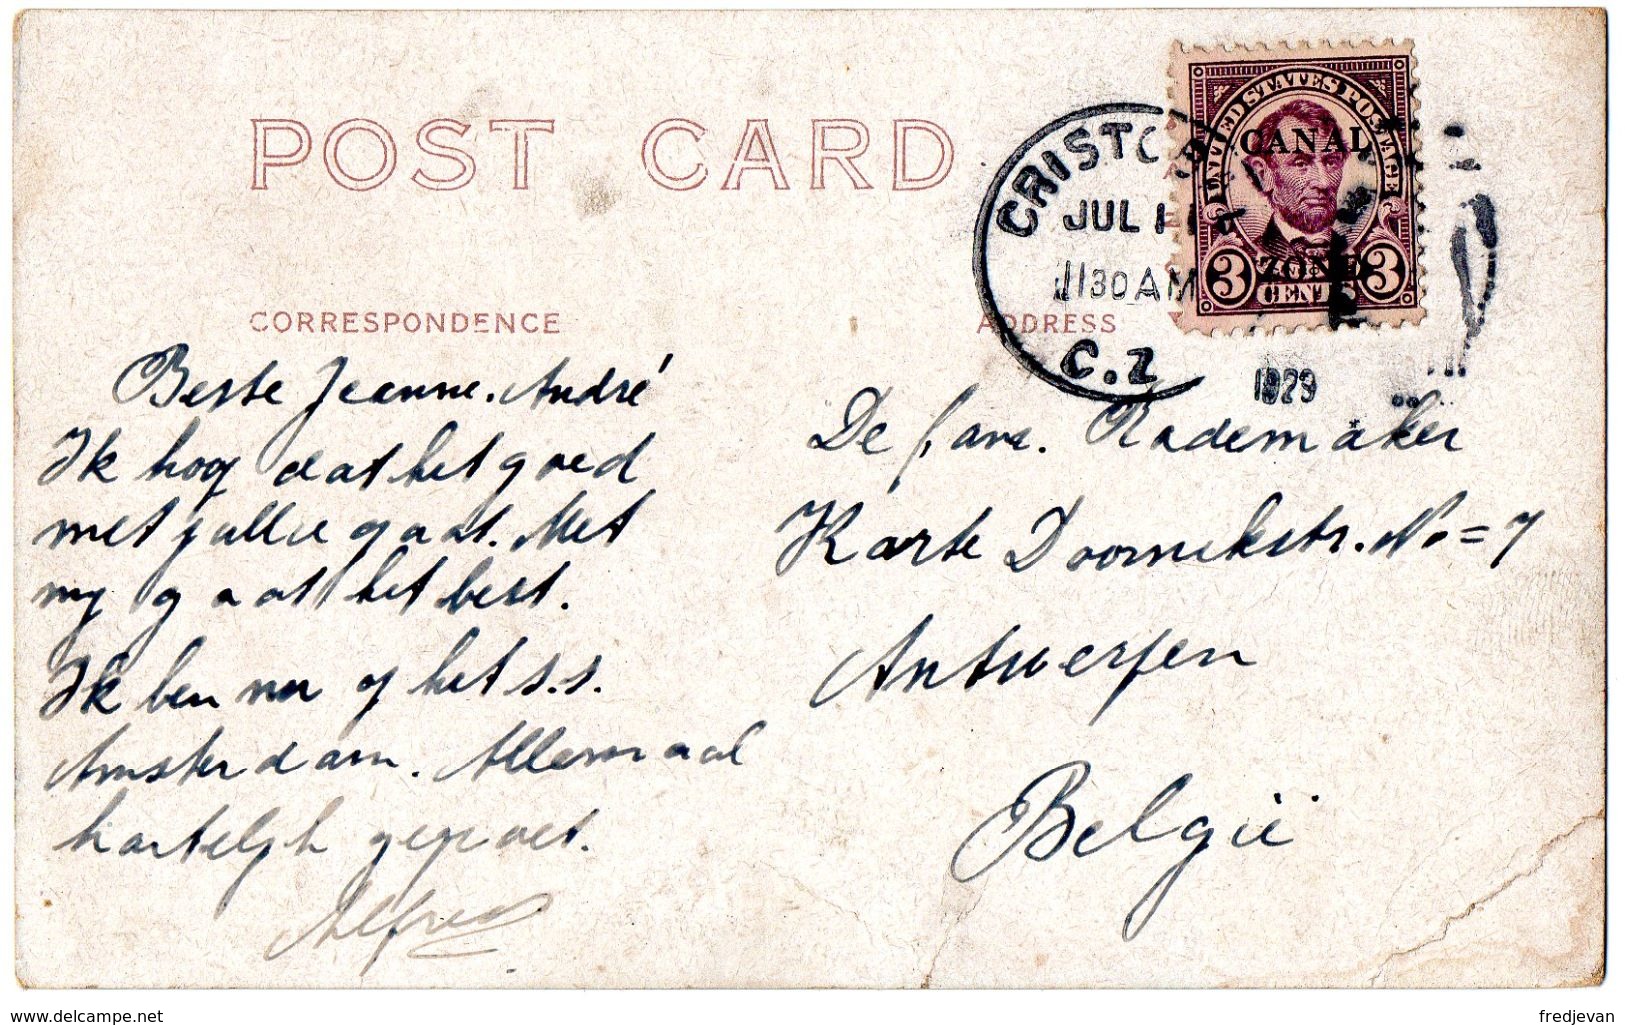 POST CARD
UNITED STATES POSTAGE
CANAL
ZONE
3 CENTS 3
CRISTOB
JUL 1
1130 AM
C.Z
1929
CORRESPONDENCE
ADDRESS
Beste Jeanne. André
Ik hoop dat het goed
met jullie gaat. Met
my gaat het best.
Ik ben nu op het s.s.
Amsterdam. Allemaal
hartelijk gegroet.
Alfred
De fam. Rademaker
Korte Doornikstr. No = 7
Antwerpen
België
delcampe.net
fredjevan